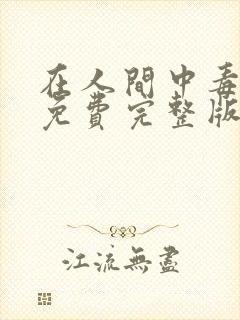 在人間中毒
免費完整版
江流無盡